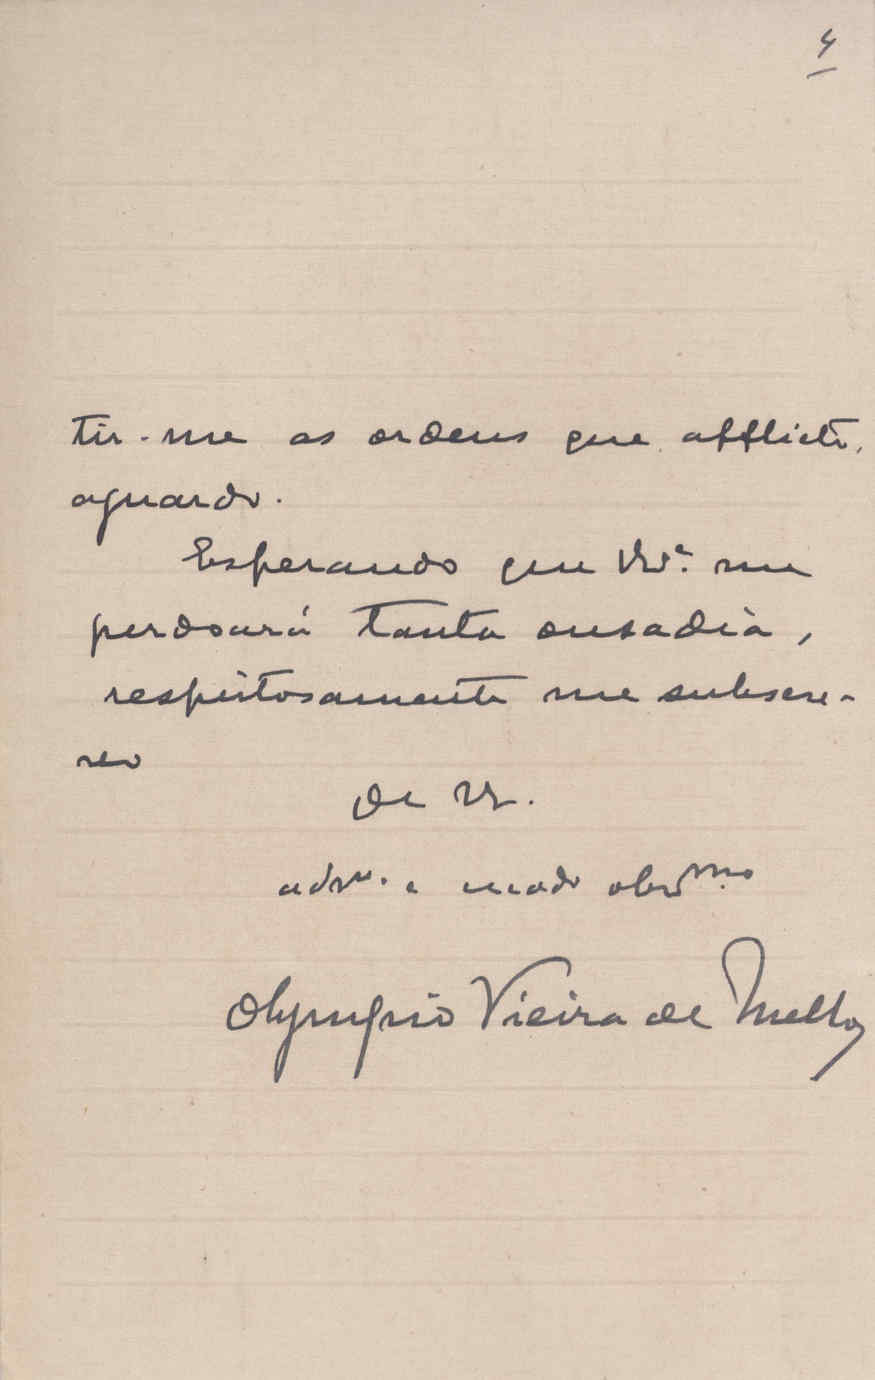 4
tir-me as ordens que afflicto,
aguardo.
Esperando que Vª. me
perdoará tanta ousadia,
respeitosamente me subscre-
vo
de V.
admr. e criado obrmo
Olympio Vieira de Mello